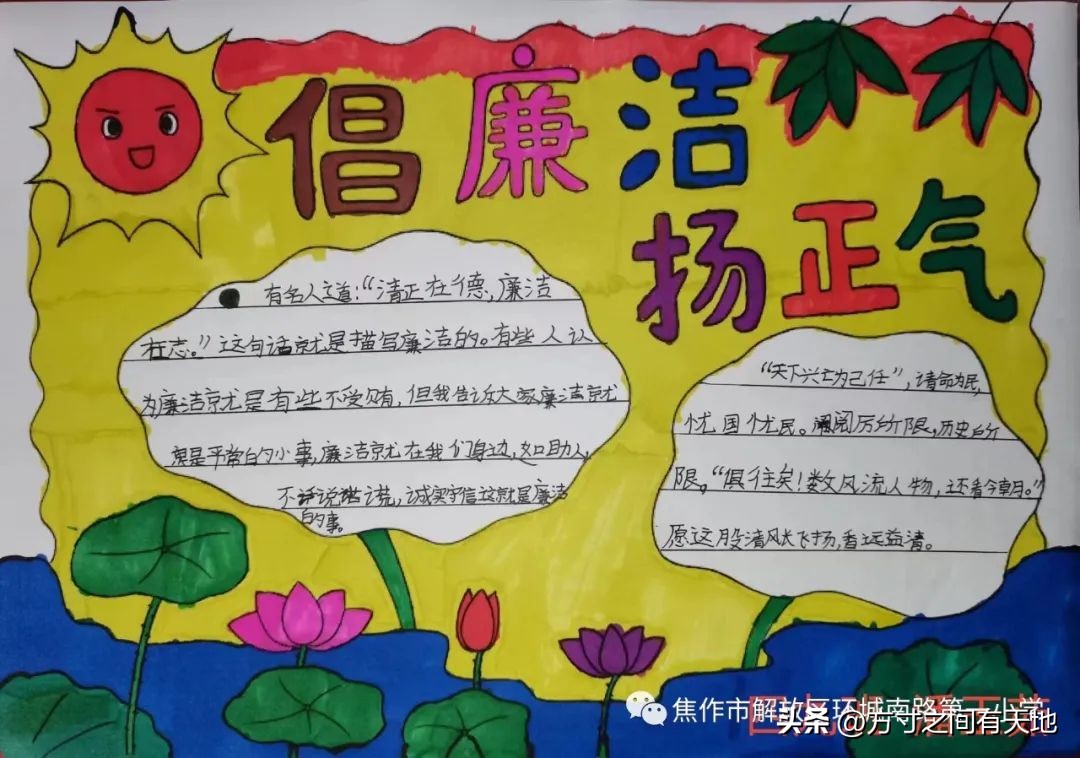 倡廉洁
扬正气
有名人道:“清正在德,廉洁
在志。”这句话就是描写廉洁的。有些人认
为廉洁就是有些不受贿,但我告诉大家廉洁就
是平常的小事,廉洁就在我们身边,如助人,
不说谎,诚实守信这就是廉洁
的事。
“天下兴亡为己任”,请命为民,
忧国忧民。阅历的限,历史的
限。“俱往矣!数风流人物,还看今朝。”
愿这股清风飞扬,香远益清。
焦作市解放区环城南路第一小学
头条 @方寸之间有天地